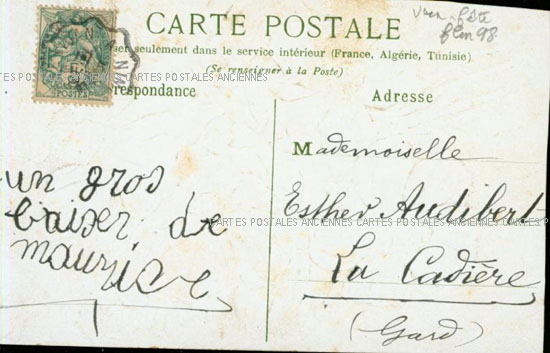 CARTE POSTALE
ser seulement dans le service intérieur (France, Algérie, Tunisie)
(Se renseigner à la Poste)
CARTES POSTALES ANCIENNES CARTES POSTALES ANCIENNES
respondance
Adresse
POSTES
un gros
baiser de
maurice
Mademoiselle
Esther Audibert
CARTES POSTALES ANCIENNES CARTES POSTALES ANCIENNES
La Cadière
(Gard)